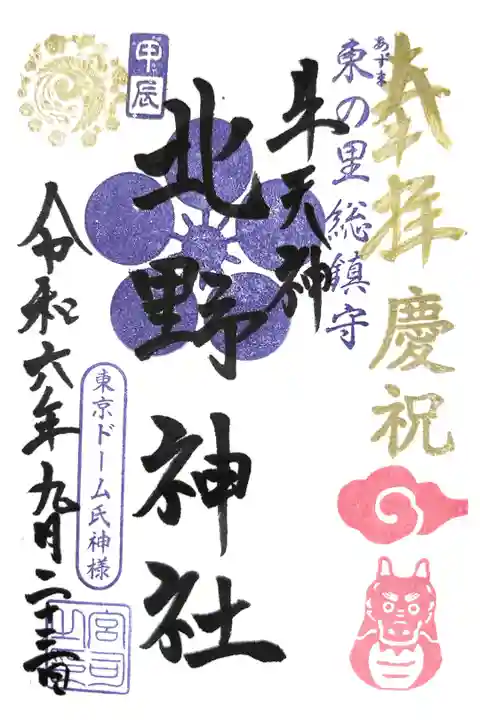 奉拝
慶祝
あずま
東の里総鎮守
牛天神
北野神社
甲辰
令和六年九月二十三日
東京ドーム氏神様
宮司之印